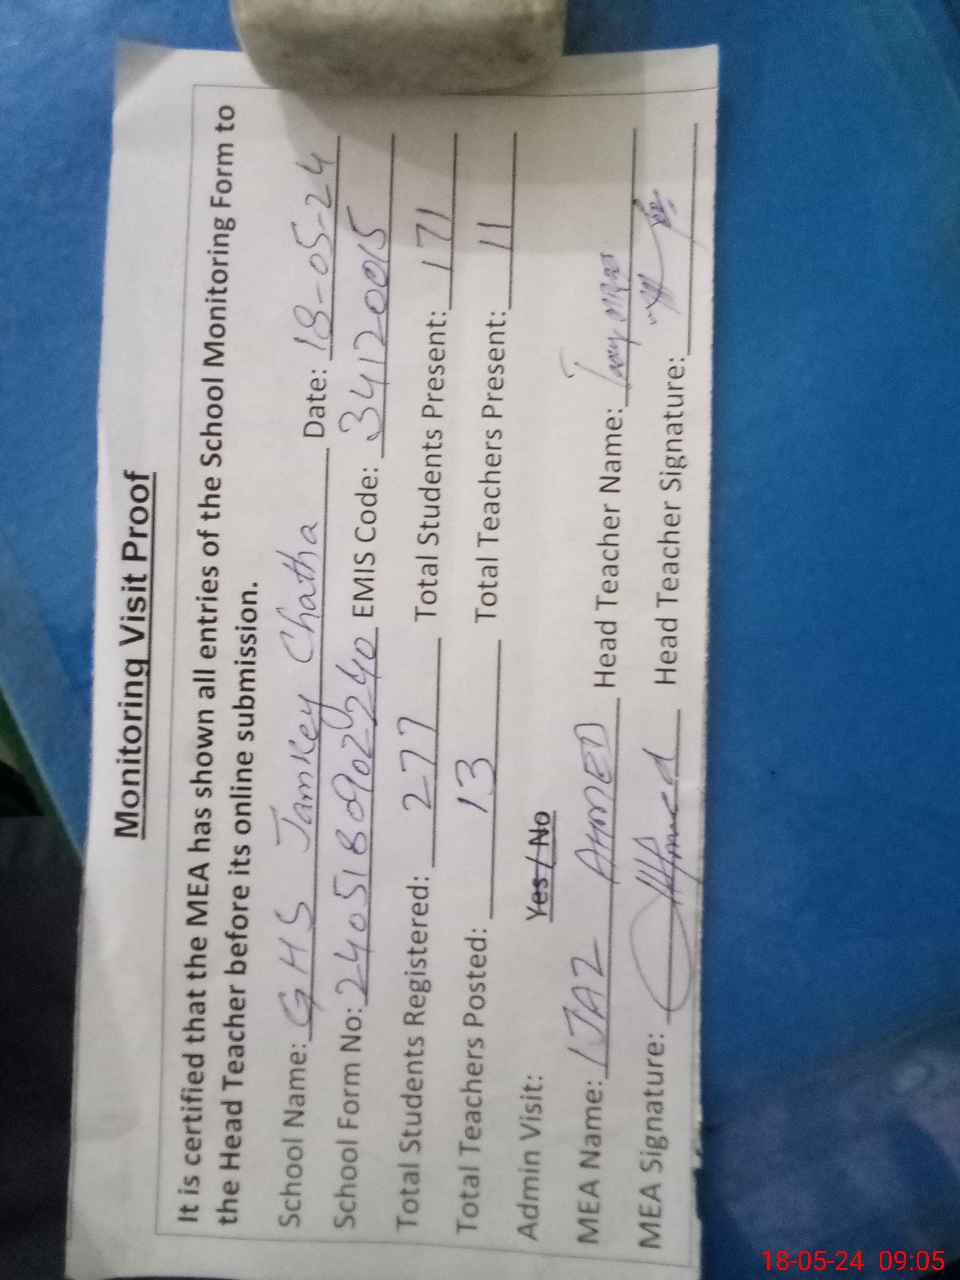 Monitoring Visit Proof
It is certified that the MEA has shown all entries of the School Monitoring Form to
the Head Teacher before its online submission.
School Name: GHS Jamkey Chatha Date: 18-05-24
School Form No: 2405180902240 EMIS Code: 34120015
Total Students Registered: 277 Total Students Present: 171
Total Teachers Posted: 13 Total Teachers Present: 11
Admin Visit: Yes / No
MEA Name: IJAZ AHMED Head Teacher Name:
MEA Signature: Ahmed Head Teacher Signature:
18-05-24 09:05